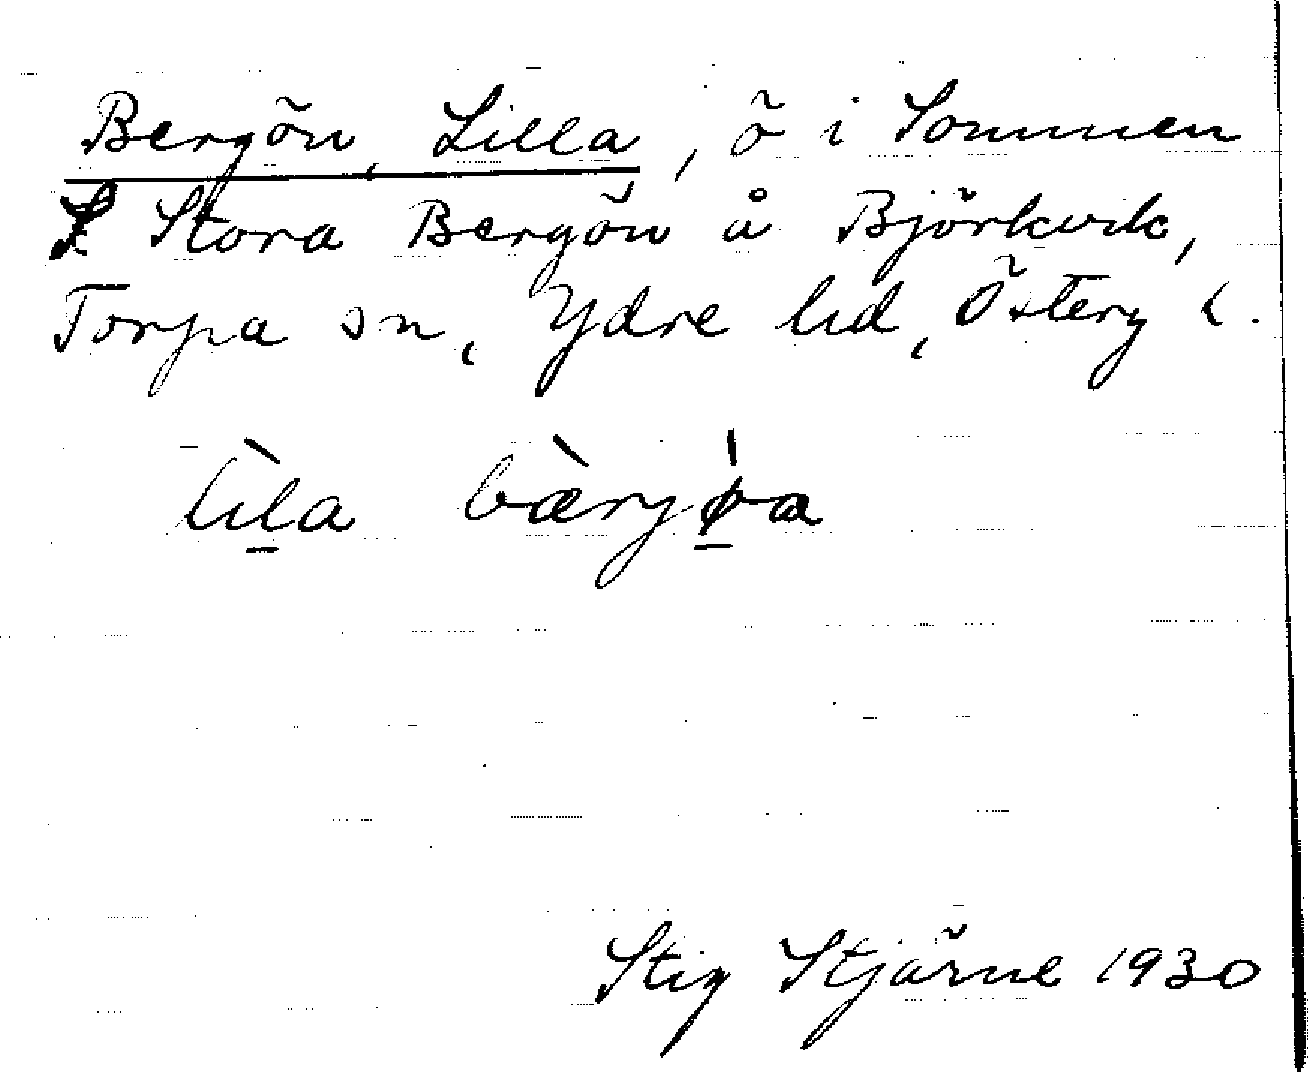 Bergön, Lilla, ö i Sommen
S Stora Bergön å Björkvik,
Torpa sn, Ydre hd, Österg l.
lìla bæ̀ryø̀a
Stig Stjärne 1930